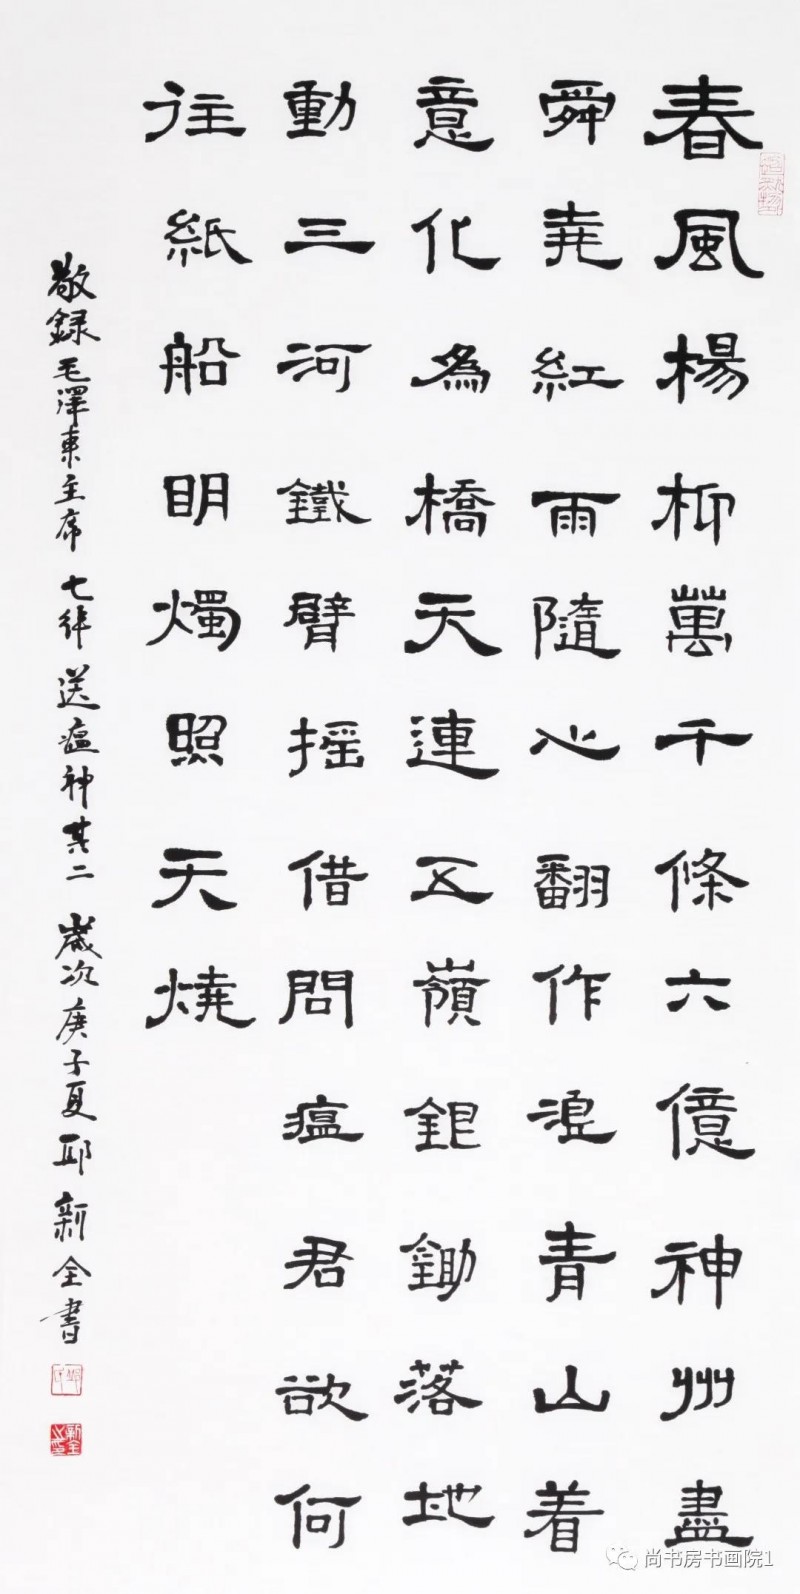 春風楊柳萬千條六億神州盡
舜堯紅雨隨心翻作浪青山着
意化為橋天連五嶺鉏鋤落地
動三河鐵臂摇借問瘟君欲何
往紙船明燭照天燒
敬録毛澤東主席七律送瘟神其二歲次庚子夏邱新全書
新全
尚书房书画院1